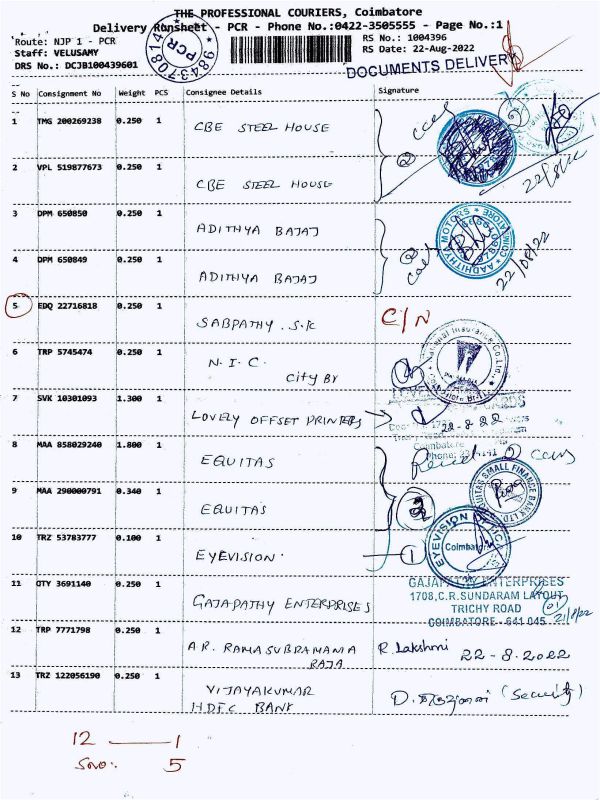 THE PROFESSIONAL COURIERS, Coimbatore
Delivery Runsheet - PCR - Phone No.:0422-3505555 - Page No.:1
Route: NJP 1 - PCR
Staff: VELUSAMY
DRS No.: DCJB100439601
PCR
RS No.: 1004396
RS Date: 22-Aug-2022
DOCUMENTS DELIVERY
S No Consignment No Weight PCS Consignee Details Signature
1 TMG 200269238 0.250 1 CBE STEEL HOUSE
22/8/22
2 VPL 519877673 0.250 1 CBE STEEL HOUSE
3 DPM 650850 0.250 1 ADITHYA BAJAJ
AADHITHYA MOTORS
COIMBATORE
4 DPM 650849 0.250 1 ADITHYA BAJAJ
22/08/22
5 EDQ 22716818 0.250 1 SABPATHY .S.K C/N
6 TRP 5745474 0.250 1 N.I.C. City Br
National Insurance Co.Ltd.,
7 SVK 10301093 1.300 1 LOVELY OFFSET PRINTERS
22-8-22
Coimbatore
8 MAA 858029240 1.800 1 EQUITAS
9 MAA 290000791 0.340 1 EQUITAS
EQUITAS SMALL FINANCE BANK LTD.
10 TRZ 53783777 0.100 1 EYEVISION. 1
EYEVISION
Coimbatore
11 OTY 3691140 0.250 1 GAJAPATHY ENTERPRISES
GAJAPATHY ENTERPRISES
1708, C.R.SUNDARAM LAYOUT
TRICHY ROAD
COIMBATORE - 641 045
21/8/22
12 TRP 7771798 0.250 1 A.R. RAMASUBRAMANIA RAJA R. Lakshmi 22-8-2022
13 TRZ 122056190 0.250 1 VIJAYAKUMAR HDFC BANK (Security)
12 — 1
Sno: 5